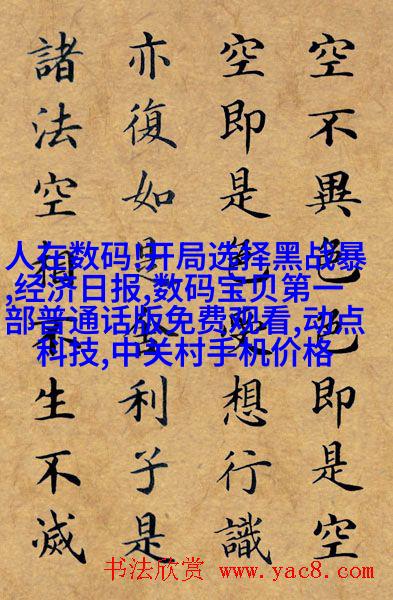 空不異色色即是空
空即是色受想行識
亦復如是舍利子是
諸法空相不生不滅
人在数码!开局选择黑战暴
,经济日报,数码宝贝第一
部普通话版免费观看,动点
科技,中关村手机价格
书法欣赏 www.yac8.com